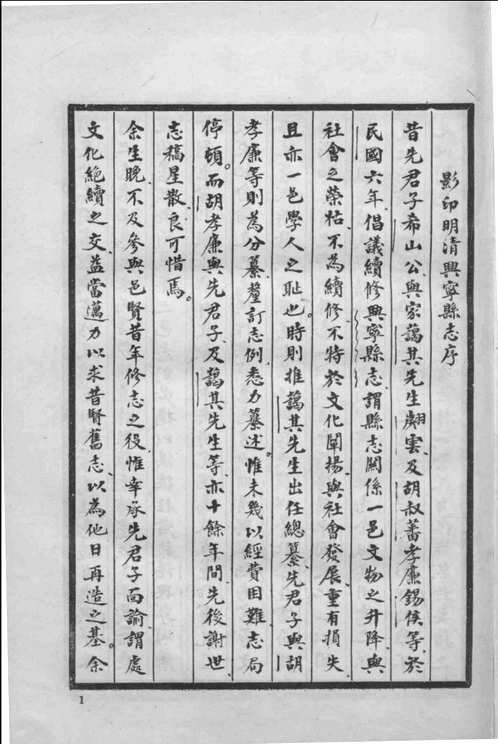 影印明清興寧縣志序
昔先君子希山公、與宗藹其先生翽雲、及胡叔蕃孝廉錫侯等、於
民國六年、倡議續修興寧縣志、謂縣志關係一邑文物之升降、與
社會之榮枯、不為續修、不特於文化闡揚、與社會發展、重有損失、
且亦一邑學人之耻也。時則推藹其先生出任總纂、先君子與胡
孝廉等則為分纂、釐訂志例、悉力纂述。惟未幾以經費困難、志局
停頓。而胡孝廉與先君子、及藹其先生等、亦十餘年間、先後謝世、
志稿星散、良可惜焉。
余生晚、不及參與邑賢昔年修志之役、惟幸承先君子面諭、謂處
文化絕續之交、益當邁力以求昔賢舊志、以為他日再造之基。余
1